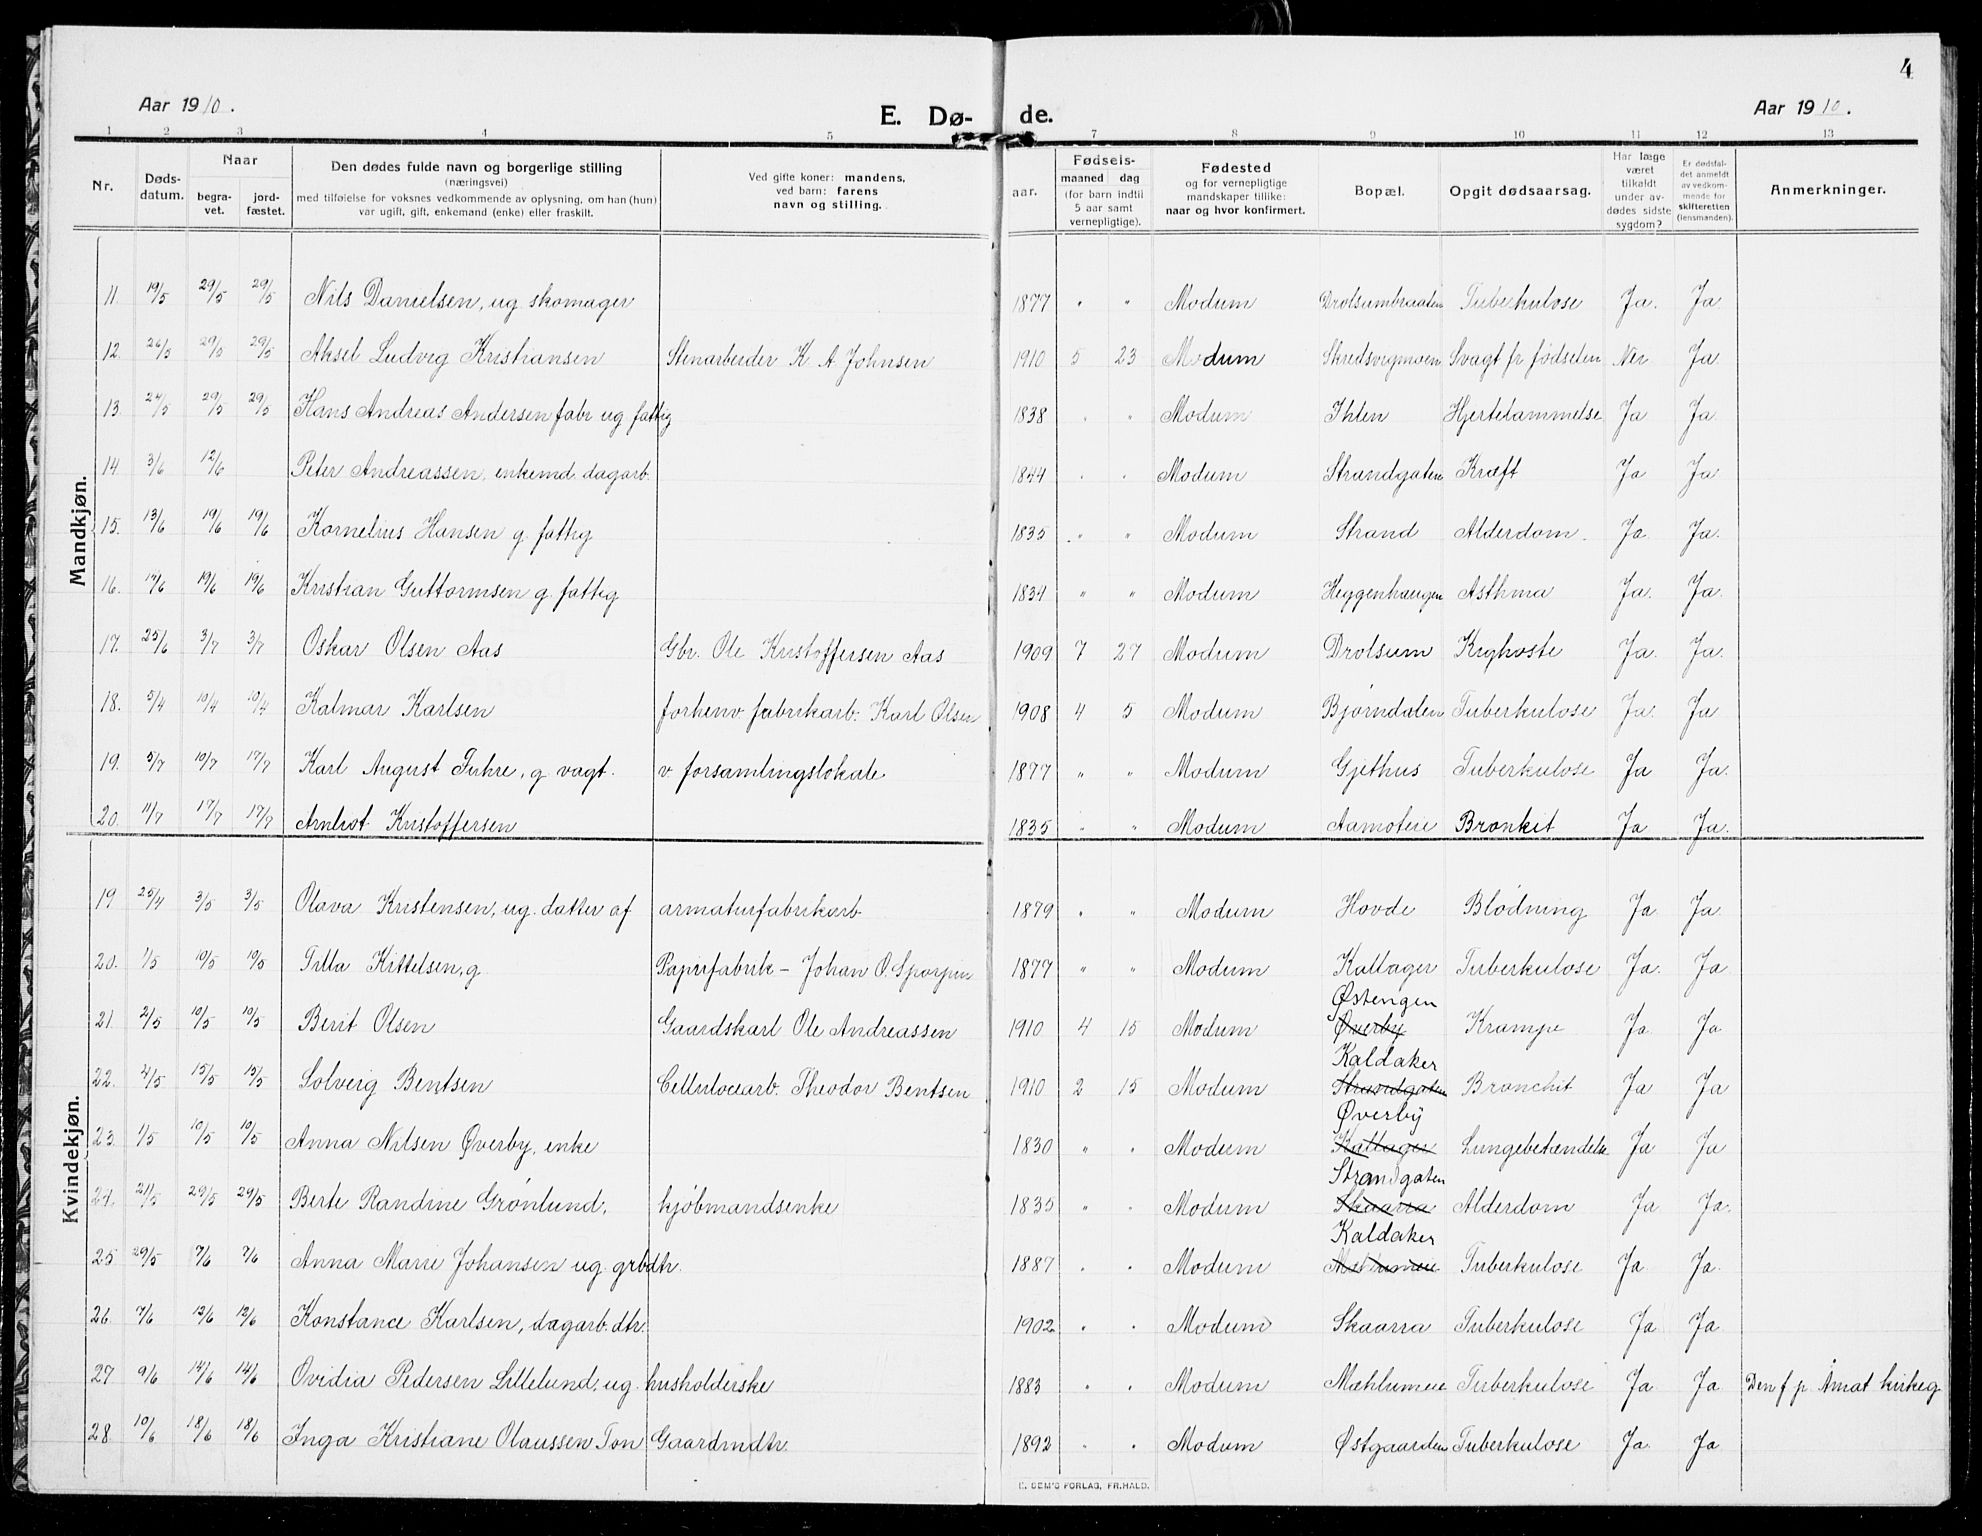 4
Aar 1910. E. Dø- de. Aar 1910.
1 2 3 4 5 7 8 9 10 11 12 13
Nr. Døds-datum. Naar begra-vet. jord-fæstet. Den dødes fulde navn og borgerlige stilling (næringsvei) med tilføielse for voksnes vedkommende av oplysning, om han (hun) var ugift, gift, enkemand (enke) eller fraskilt. Ved gifte koner: mandens, ved barn: farens navn og stilling. aar. Fødsels- maaned dag (for barn indtil 5 aar samt vernepligtige). Fødested og for vernepligtige mandskaper tillike: naar og hvor konfirmert. Bopæl. Opgit dødsaarsag. Har læge været tilkaldt under av-dødes sidste sygdom? Er dødsfal-det anmeldt av vedkom-mende for skifteretten (lensmanden). Anmerkninger.
Mandkjøn.
11 19/5 29/5 29/5 Nils Danielsen, ug skomager 1877 " " Modum Drolsumbraaten Tuberkulose Ja. Ja
12. 26/5 29/5 29/5 Aksel Ludvig Kristiansen Stenarbeider K A Johnsen 1910 5 23 Modum Skredsvigmoen Svagt fr fødselen Nei Ja
13. 24/5 29/5 29/5 Hans Andreas Andersen fabr ug fattig 1838 " " Modum Ihlen Hjertelammelse Ja Ja.
14 3/6 12/6 Peter Andreassen, enkemd. dagarb. 1844 " " Modum Strandgaten Kræft Ja Ja
15. 13/6 19/6 19/6 Kornelius Hansen g. fattig 1835 " " Modum Strand Alderdom. Ja. Ja.
16. 14/6 19/6 19/6 Kristian Guttormsen g. fattig 1834 " " Modum Heggenhaugen Asthma Ja. Ja.
17. 25/6 3/7 3/7 Oskar Olsen Aas Gbr. Ole Kristoffersen Aas 1909 7 27 Modum Drolsum Kighoste Ja. Ja.
18. 5/4 10/4 10/4 Kalmar Karlsen forhenv fabrikarb. Karl Olsen 1908 4 5 Modum Bjørndalen Tuberkulose Ja. Ja
19. 5/7 10/7 17/7 Karl August Fuhre, g. vagt. v forsamlingslokale 1877 " " Modum Gjethus Tuberkulose Ja Ja.
20. 11/7 17/7 17/7 Arnliot Kristoffersen 1835 " " Modum Aamoteie Bronkit Ja Ja.
Kvindekjøn.
19 25/4 3/5 3/5 Olava Kristensen, ug. datter af armaturfabrikarb 1879 " " Modum Hovde Blødning Ja. Ja.
20. 1/5 10/5 10/5 Tilla Kittelsen, g Papirfabrik - Johan O. 1877 " " Modum Kallager Tuberkulose Ja. Ja
Østengen
21. 2/5 10/5 10/5 Berit Olsen Gaardskarl Ole Andreassen 1910 4 15 Modum Øverby Krampe Ja. Ja
Kaldaker
22. 4/5 15/5 15/5 Solveig Bentsen Cellulosearb. Theodor Bentsen 1910 2 15 Modum Strandgaten Bronchit Ja Ja
Øverby
23. 1/5 10/5 10/5 Anna Nilsen Øverby, enke 1830 " " Modum Kallager Lungebetændelse Ja Ja
Strandgaten
24. 21/5 29/5 29/5 Berte Randine Grønlund, kjøbmandsenke 1835 " " Modum Skaarra Alderdom Ja Ja.
Kaldaker
25 29/5 7/6 7/6 Anna Marie Johansen ug. grbdtr. 1887 " " Modum Mælumeie Tuberkulose Ja Ja.
26. 7/6 12/6 12/6 Konstance Karlsen, dagarb. dtr. 1902 " " Modum Skaarra Tuberkulose Ja Ja
27 9/6 14/6 14/6 Ovidia Pedersen Lillelund, ug. husholderske 1883 " " Modum Mæhlumeie Tuberkulose Ja. Ja. Den f. p. Åmot kirkeg
28. 10/6 18/6 18/6 Inga Kristiane Olaussen Ton Gaardmdtr. 1892 " " Modum Østgaarden Tuberkulose Ja. Ja
E. SEM'S FORLAG, FR.HALD.